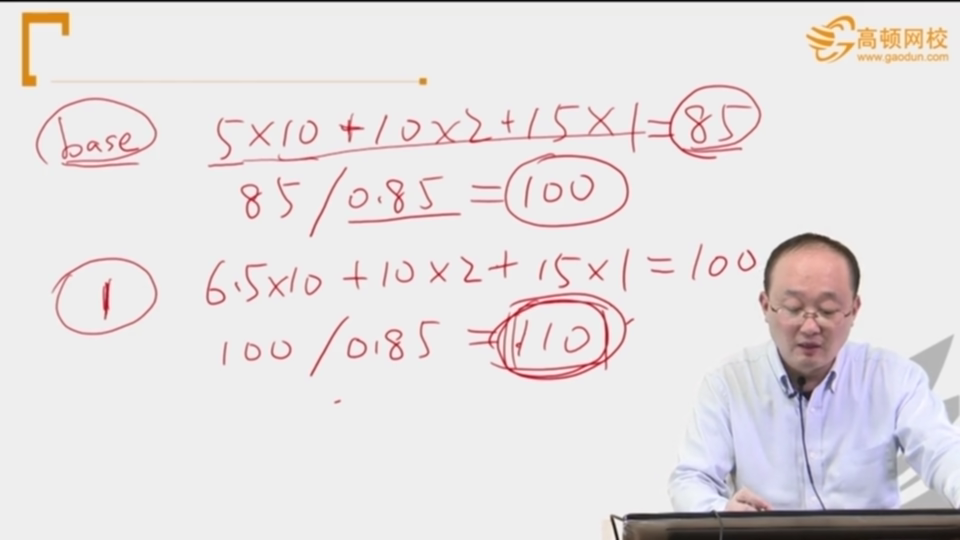 高顿网校
www.gaodun.com
base 5×10+10×2+15×1=85
85/0.85=100
1 6.5×10+10×2+15×1=100
100/0.85=110